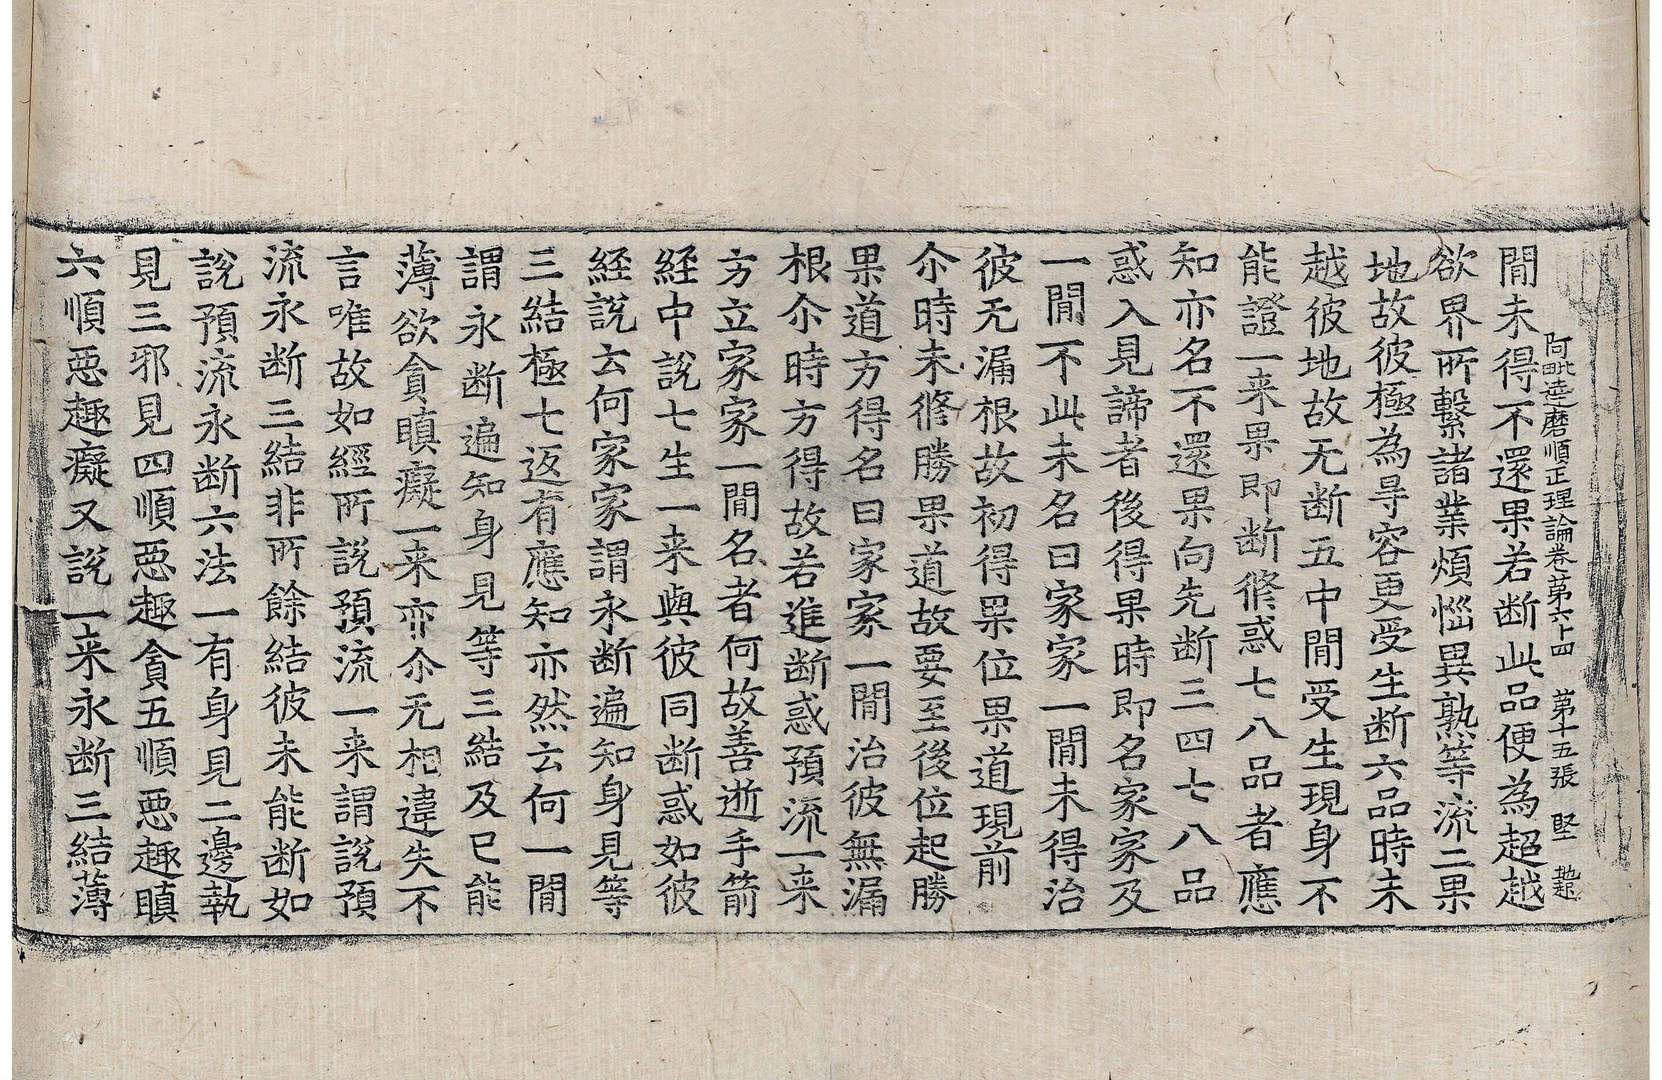 阿毗達磨順正理論卷第六十四　第十五張　堅
閒未得不還果若断此品便為超越
欲界所繫諸業煩惱異熟等流二果
地故彼極為㝵容更受生断六品時未
越彼地故无断五中閒受生現身不
能證一来果即断脩惑七八品者應
知亦名不還果向先断三四七八品
惑入見諦者後得果時即名家家及
一閒不此未名曰家家一閒未得治
彼无漏根故初得果位果道現前
尒時未脩勝果道故要至後位起勝
果道方得名曰家家一閒治彼無漏
根尒時方得故若進断惑預流一来
方立家家一閒名者何故善逝手箭
經中說七生一来與彼同断惑如彼
経說云何家家謂永断遍知身見等
三結極七返有應知亦然云何一閒
謂永断遍知身見等三結及已能
薄欲貪瞋癡一来亦尒无相違失不
言唯故如經所說預流一来謂說預
流永断三結非所餘結彼未能断如
說預流永断六法一有身見二邊執
見三邪見四順悪趣貪五順悪趣瞋
六順悪趣癡又說一来永断三結薄